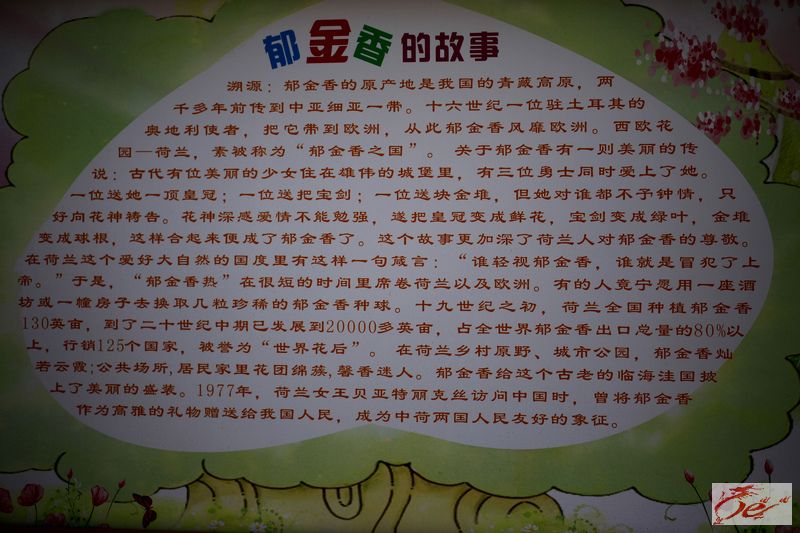 郁金香的故事
溯源：郁金香的原产地是我国的青藏高原，两
千多年前传到中亚细亚一带。十六世纪一位驻土耳其的
奥地利使者，把它带到欧洲，从此郁金香风靡欧洲。西欧花
园—荷兰，素被称为“郁金香之国”。关于郁金香有一则美丽的传
说：古代有位美丽的少女住在雄伟的城堡里，有三位勇士同时爱上了她。
一位送她一顶皇冠；一位送把宝剑；一位送块金堆，但她对谁都不予钟情，只
好向花神祷告。花神深感爱情不能勉强，遂把皇冠变成鲜花，宝剑变成绿叶，金堆
变成球根，这样合起来便成了郁金香了。这个故事更加深了荷兰人对郁金香的尊敬。
在荷兰这个爱好大自然的国度里有这样一句箴言：“谁轻视郁金香，谁就是冒犯了上
帝。”于是，“郁金香热”在很短的时间里席卷荷兰以及欧洲。有的人竟宁愿用一座酒
坊或一幢房子去换取几粒珍稀的郁金香种球。十九世纪之初，荷兰全国种植郁金香
130英亩，到了二十世纪中期已发展到20000多英亩，占全世界郁金香出口总量的80%以
上，行销125个国家，被誉为“世界花后”。在荷兰乡村原野、城市公园，郁金香灿
若云霞;公共场所,居民家里花团绵蔟,馨香迷人。郁金香给这个古老的临海洼国披
上了美丽的盛装。1977年，荷兰女王贝亚特丽克丝访问中国时，曾将郁金香
作为高雅的礼物赠送给我国人民，成为中荷两国人民友好的象征。